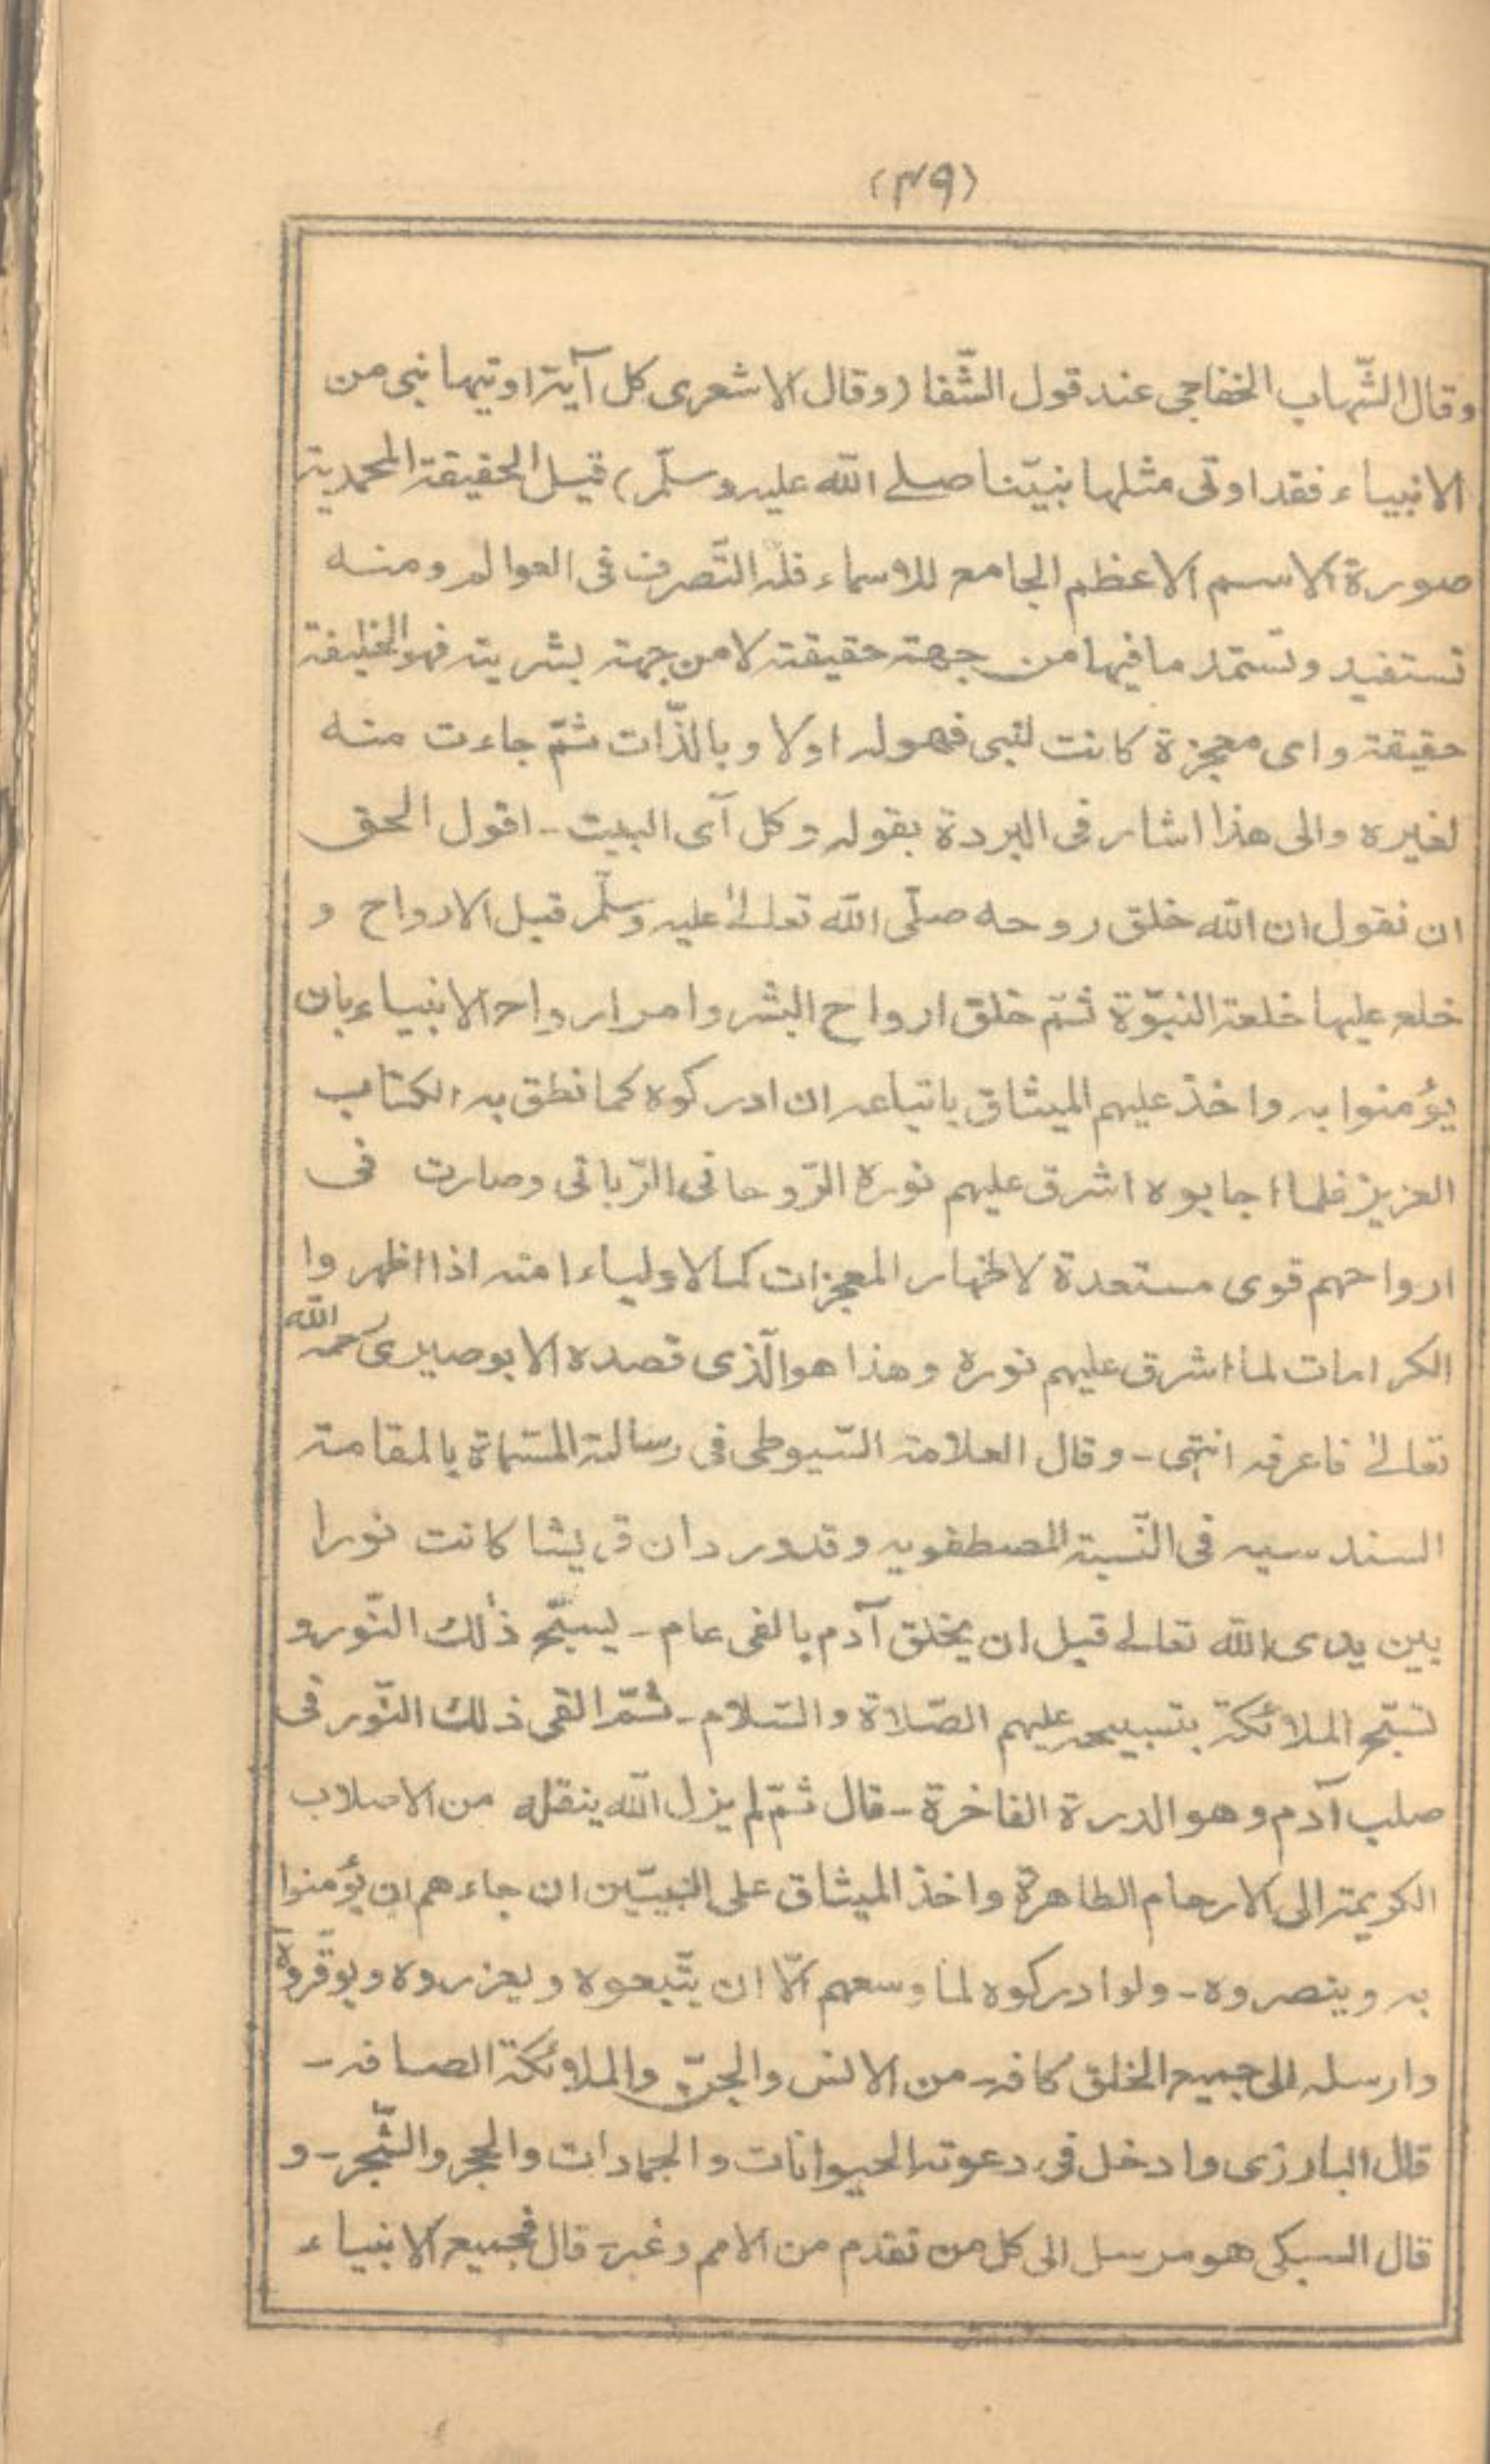 (٣٩)
وقال الشّهاب الخفاجى عند قول الشّفا (وقال الاشعرى كل آية اوتيها نبى من
الانبياء فقد اوتى مثلها نبيّنا صلے اللّه عليه وسلّم) قيل الحقيقة المحمدية
صورة الاسم الاعظم الجامع للاسماء فله التّصرف فى العوالم ومنه
تستفيد وتستمد مافيها من جهة حقيقته لا من جهة بشريته فهو الخليفة
حقيقة واى معجزة كانت لنبى فهوله اولا وبالذّات ثمّ جاءت منه
لغيره والى هذا اشار فى البردة بقوله وكل آى البيت - اقول الحق
ان نقول ان اللّه خلق روحه صلّى اللّه تعالىٰ عليه وسلّم قبل الارواح و
خلع عليها خلعة النبوّة ثمّ خلق ارواح البشر وامر ارواح الانبياء بان
يؤمنوا به واخذ عليهم الميثاق باتباعه ان ادركوه كما نطق به الكتاب
العزيز فلما اجابوه اشرق عليهم نوره الرّوحانى الرّبانى وصارت فى
ارواحهم قوى مستعدة لاظهار المعجزات كما لاولياء امته اذا اظهروا
الكرامات لما اشرق عليهم نوره وهذا هو الّذى قصده الابوصيرى رحمه اللّه
تعالىٰ فاعرفه انتهى - وقال العلامة السّيوطى فى رسالته المسّماة بالمقامة
السندسيه فى النّسبة المصطفويه وقدورد ان قريشا كانت نورا
بين يدى اللّه تعالے قبل ان يخلق آدم بالفى عام - يسبّح ذٰلك النّورو
تسبّح الملائكة بتسبيحه عليهم الصّلاة والسّلام - ثمّ القى ذلك النّور فى
صلب آدم وهو الدرة الفاخرة - قال ثمّ لم يزل اللّه ينقله من الاصلاب
الكريمة الى الارحام الطاهرة واخذ الميثاق على النبيّين ان جاءهم ان يؤمنوا
به وينصروه - ولو ادركوه لما وسعهم الّا ان يتّبعوه ويعزروه ويوقّروه
وارسله الى جميع الخلق كافه - من الانس والجنّ والملائكة الصافه -
قال البارزى وادخل فى دعوته الحيوانات والجمادات والحجر والشّجر - و
قال السبكى هو مرسل الى كل من تقدم من الامم وغبر - قال فجميع الانبياء